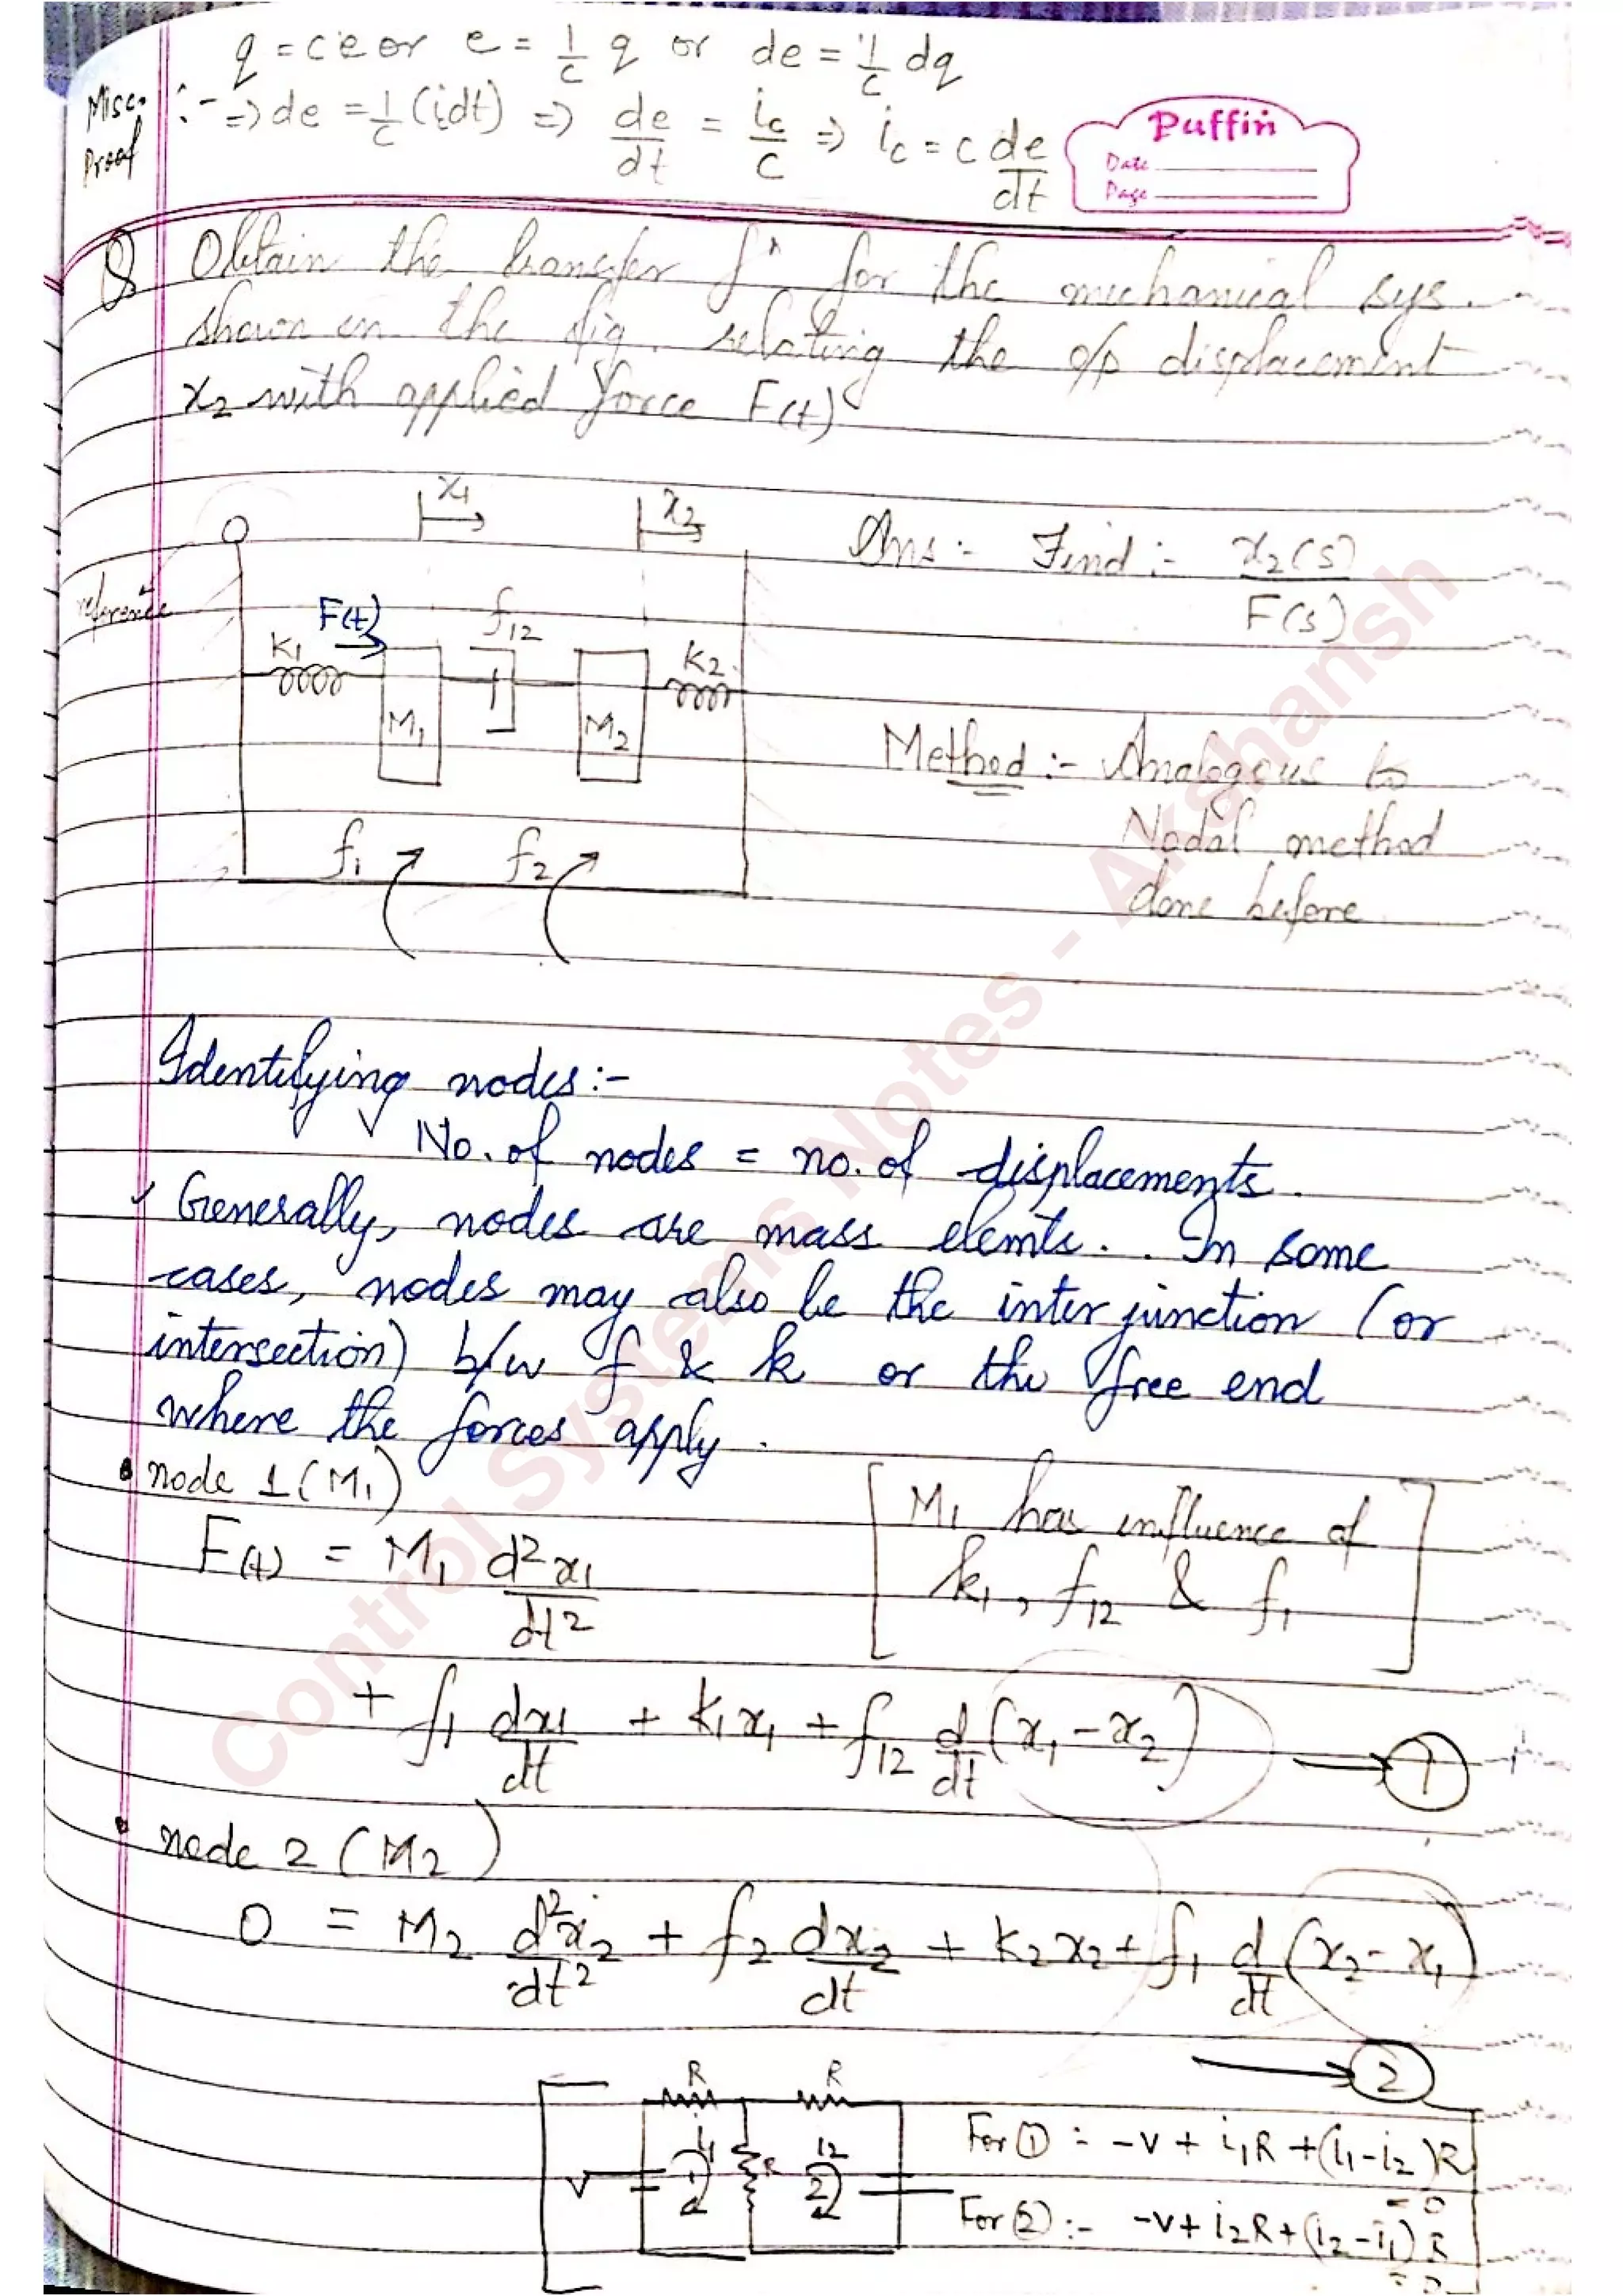 q = ce or e = 1/c q or de = 1/c dq
Misc. Proof :- => de = 1/c (i dt) => de/dt = ic/c => ic = c de/dt
Puffin
Date
Page
Q Obtain the transfer fn for the mechanical sys.
shown in the fig. relating the o/p displacement
x2 with applied force F(t)
x1 x2
Ans :- Find :- x2(s)/F(s)
reference
F(t) f12
K1 K2
M1 M2
Method :- Analogous to
Nodal method
done before
f1 f2
Identifying nodes:-
No. of nodes = no. of displacements.
Generally, nodes are mass elemts. . In some
cases, nodes may also be the inter junction (or
intersection) b/w f & k or the free end
where the forces apply.
• node 1 (M1)
[M1 has influence of
k1, f12 & f1]
F(t) = M1 d²x1/dt²
+ f1 dx1/dt + K1x1 + f12 d/dt (x1 - x2) → 1
• node 2 (M2)
0 = M2 d²x2/dt² + f2 dx2/dt + K2x2 + f1 d/dt (x2 - x1)
→ 2
R R
V i1 1 R i2 2
For ① :- -V + i1R + (i1-i2)R = 0
For ② :- -V + i2R + (i2-i1)R = 0
Control Systems Notes - Akshansh